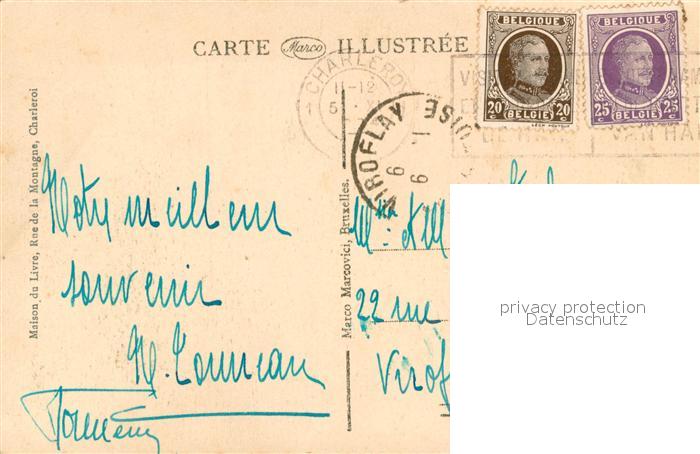 CARTE Marco ILLUSTRÉE
BELGIQUE
20c 20c
BELGIË
BELGIQUE
25c 25c
BELGIË
CHARLEROI
11-12
5
VIROFLAY
OISE
6
Maison du Livre, Rue de la Montagne, Charleroi
Marco Marcovici, Bruxelles.
Notre meilleur
souvenir
22 rue
Virof
privacy protection
Datenschutz